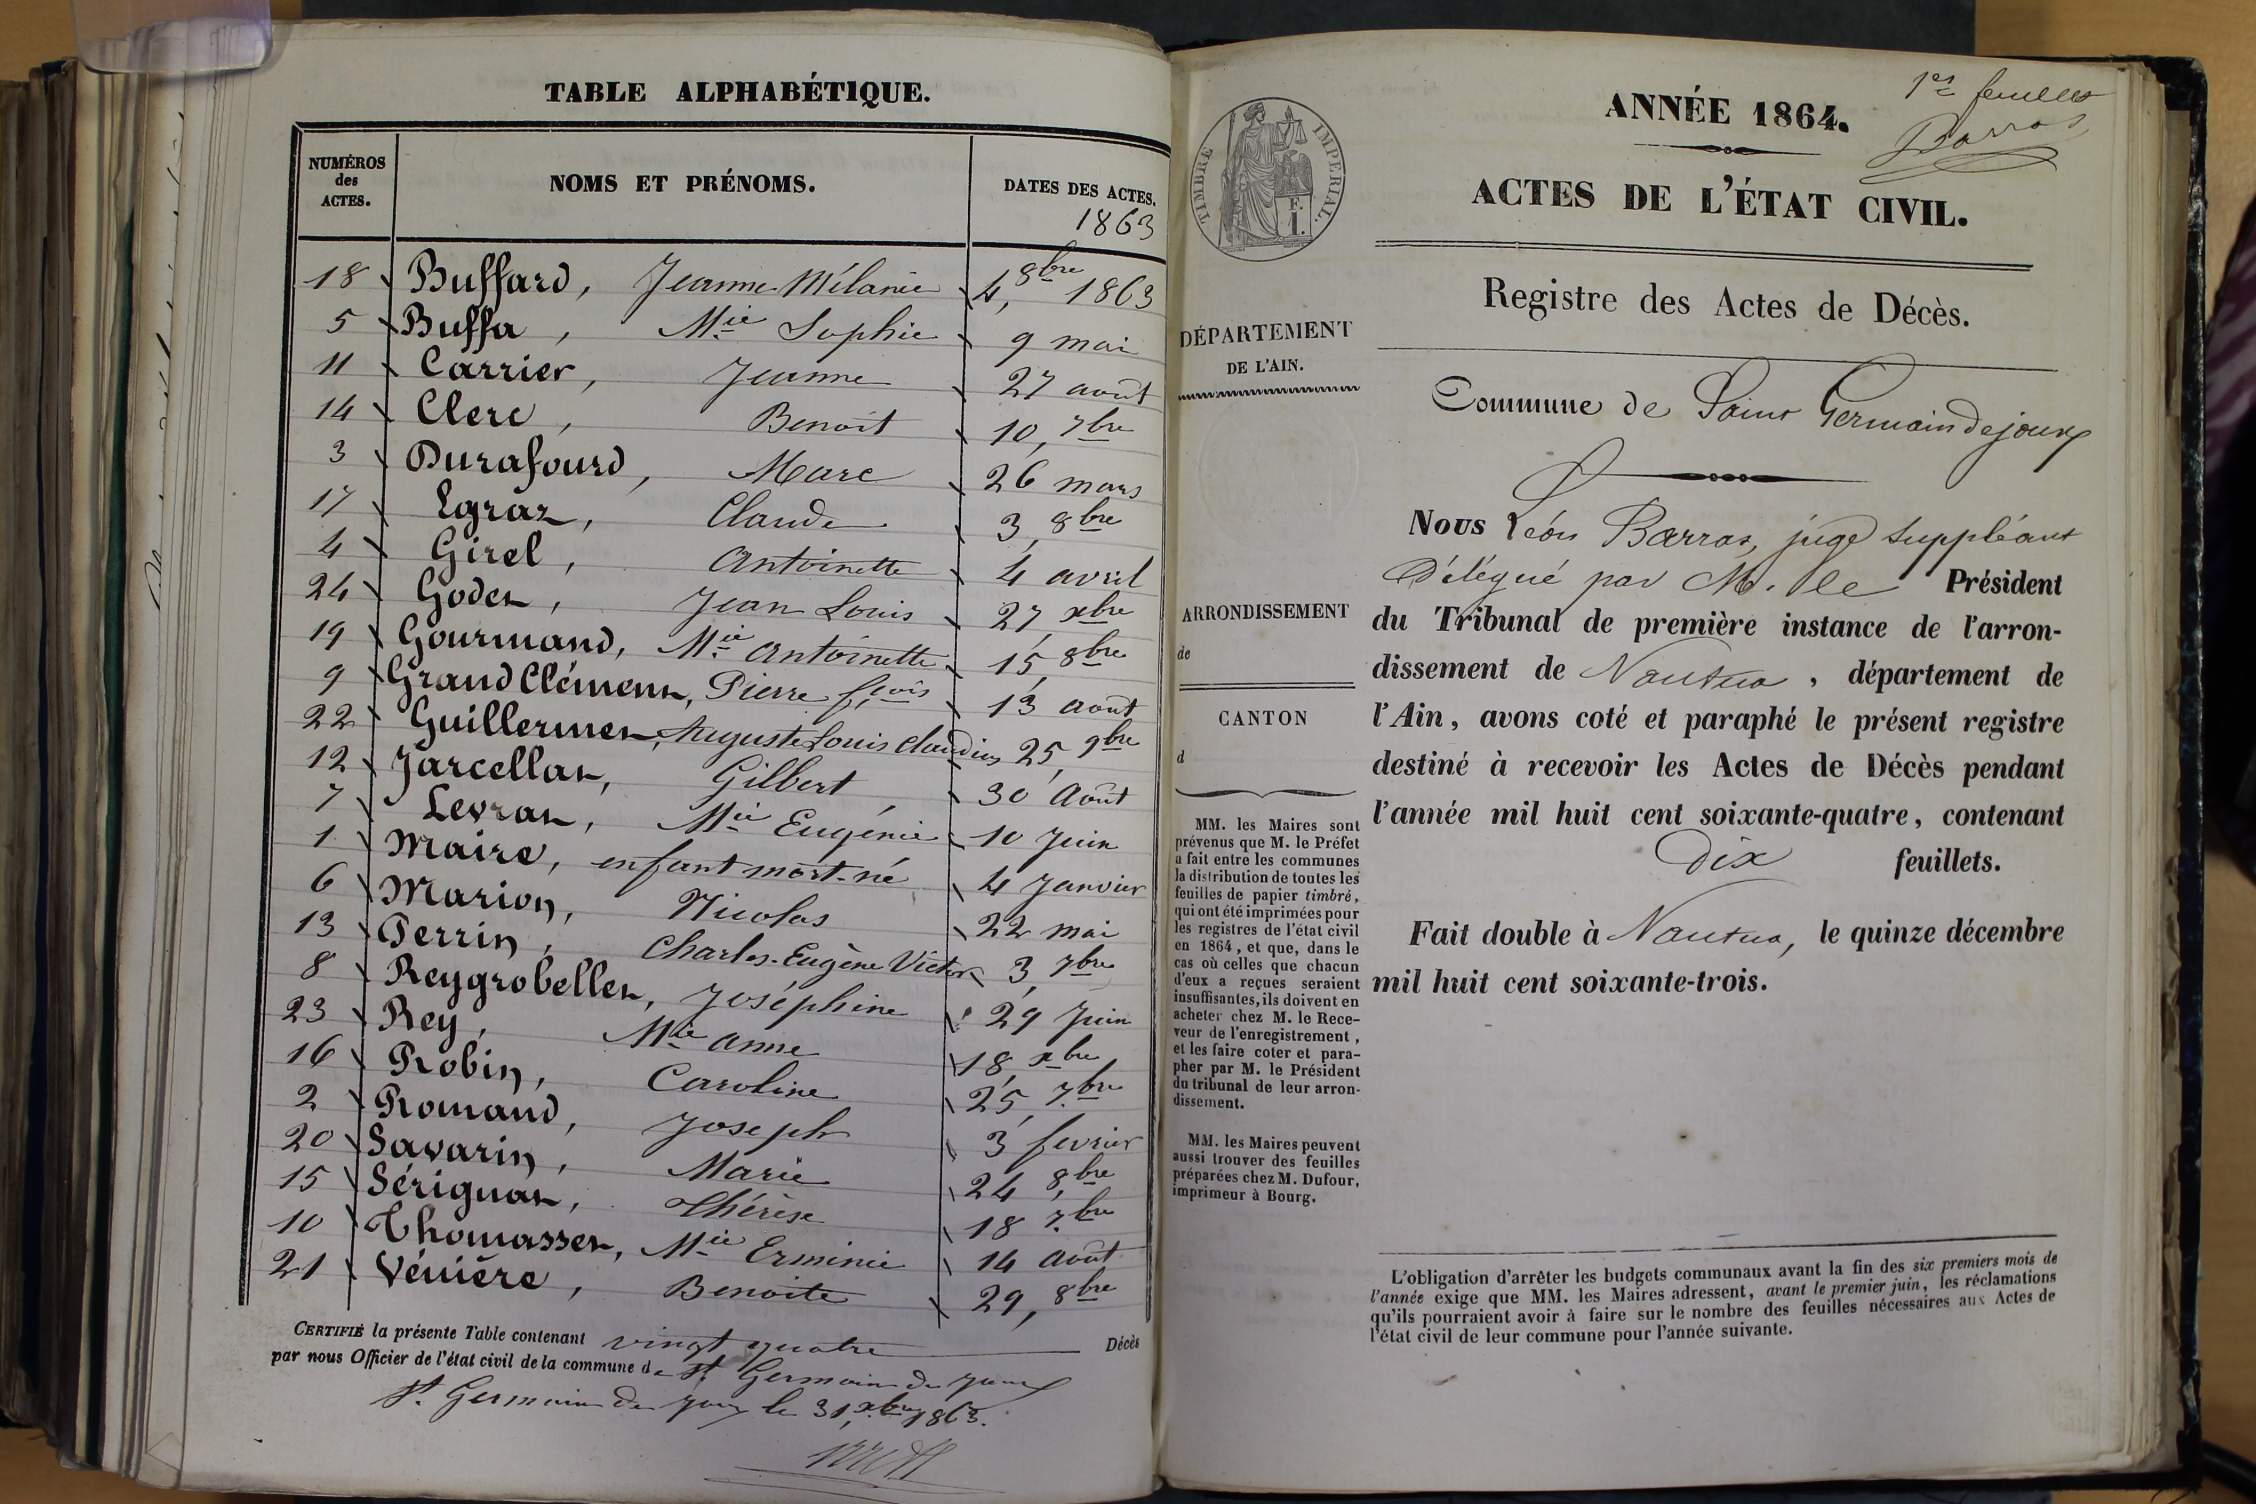 TABLE ALPHABÉTIQUE.
NUMÉROS des ACTES. NOMS ET PRÉNOMS. DATES DES ACTES.
1863
18 Buffard, Jeanne Mélanie 4, 8bre 1863
5 Buffa, Mie Sophie 9 mai
11 Carrier, Jeanne 27 août
14 Clerc, Benoit 10, 7bre
3 Durafourd, Marc 26 mars
17 Egraz, Claude 3, 8bre
4 Girel, Antoinette 4 avril
24 Godet, Jean Louis 27, xbre
19 Gourmand, Mie Antoinette 15, 8bre
9 Grand Clément, Pierre fçois 13 août
22 Guillermet, Auguste Louis Claudius 25, 9bre
12 Jarcellat, Gilbert 30 Août
7 Levrat, Mie Eugénie 10 Juin
1 Maire, enfant mort-né 4 Janvier
6 Marion, Nicolas 22 mai
13 Perrin, Charles-Eugène Victor 3, 7bre
8 Reygrobellet, Joséphine 29 Juin
23 Rey, Mie Anne 18, xbre
16 Robin, Caroline 25, 7bre
2 Romand, Joseph 3 fevrier
20 Savarin, Marie 24, 8bre
15 Sérignat, Thérèse 18 7bre
10 Thomasset, Mie Erminie 14 août
21 Vénière, Benoite 29, 8bre
CERTIFIÉ la présente Table contenant vingt quatre Décès
par nous Officier de l'état civil de la commune de St Germain de Joux
St. Germain de Joux le 31, xbre 1863.
1re feuille
Barras
ANNÉE 1864.
TIMBRE IMPÉRIAL.
F.
1.
ACTES DE L'ÉTAT CIVIL.
Registre des Actes de Décès.
DÉPARTEMENT
DE L'AIN.
Commune de Saint Germain de joux
ARRONDISSEMENT
de
CANTON
d
MM. les Maires sont
prévenus que M. le Préfet
a fait entre les communes
la distribution de toutes les
feuilles de papier timbré,
qui ont été imprimées pour
les registres de l'état civil
en 1864, et que, dans le
cas où celles que chacun
d'eux a reçues seraient
insuffisantes, ils doivent en
acheter chez M. le Rece-
veur de l'enregistrement,
et les faire coter et para-
pher par M. le Président
du tribunal de leur arron-
dissement.
MM. les Maires peuvent
aussi trouver des feuilles
préparées chez M. Dufour,
imprimeur à Bourg.
Nous Léon Barras, juge suppléant
Délégué par M. le Président
du Tribunal de première instance de l'arron-
dissement de Nantua, département de
l'Ain, avons coté et paraphé le présent registre
destiné à recevoir les Actes de Décès pendant
l'année mil huit cent soixante-quatre, contenant
Dix feuillets.
Fait double à Nantua, le quinze décembre
mil huit cent soixante-trois.
L'obligation d'arrêter les budgets communaux avant la fin des six premiers mois de
l'année exige que MM. les Maires adressent, avant le premier juin, les réclamations
qu'ils pourraient avoir à faire sur le nombre des feuilles nécessaires aux Actes de
l'état civil de leur commune pour l'année suivante.